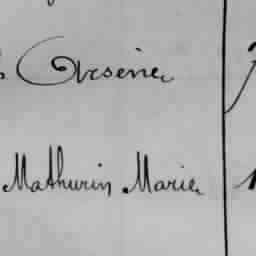 Arsène
Mathurin Marie